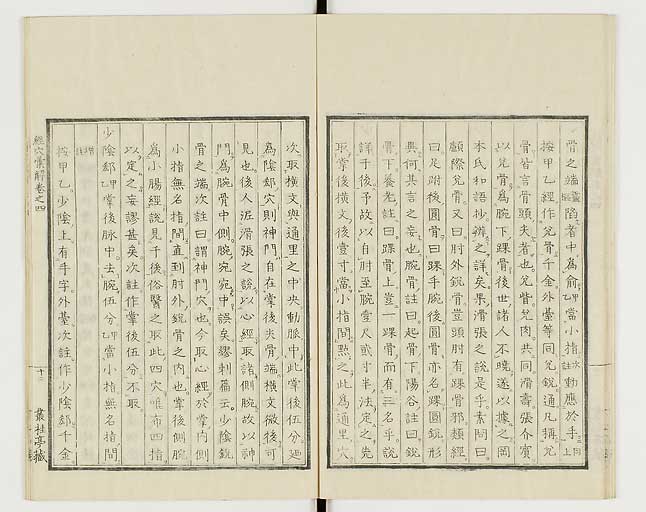 骨之端陷者中爲兪甲乙當小指註動應於手
按甲乙經作兊骨千金外臺等同兊銳通凡稱兊
骨皆言骨頭夫者也兊當兊肉共同滑壽張介賓
以兊骨爲腕下踝骨後世諸人不曉遂以據之岡
本氏和語抄辨之詳矣果滑張之說是乎素問曰
顧際兊骨又曰肘外銳骨豈頭肘有踝骨邪類經
曰是附後圓骨曰踝手腕後圓骨亦名踝圓銳形
異何其言之妄也腕骨註曰起骨下陽谷註曰銳
骨下養老註曰踝骨上豈一踝骨而有三名乎說
詳于後予故以自肘至腕壹尺貳寸半法定之先
取掌後橫文後壹寸當小指間點之此爲通里穴
次取橫文與通里之中央動脈中此掌後伍分廼
爲陰郄穴則神門自在掌後夬骨端橫文微後可
見也後人泥滑張之說以心經取諸側腕故以神
門爲腕骨中側腕宛宛中誤矣繆刺篇云少陰銳
骨之端次註曰謂神門穴也今取心經於掌內側
小指無名指間直到肘外銳骨之內也掌後側腕
爲小腸經說見于後俗醫之取此四穴唯布四指
以定之妄謬甚矣次註作掌後伍分不取
少陰郄甲乙掌後脉中去腕伍分甲乙當小指無名指間
按甲乙少陰上有手字外臺次註作少陰郄千金
經穴彙解卷之四
十三
叢桂亭藏